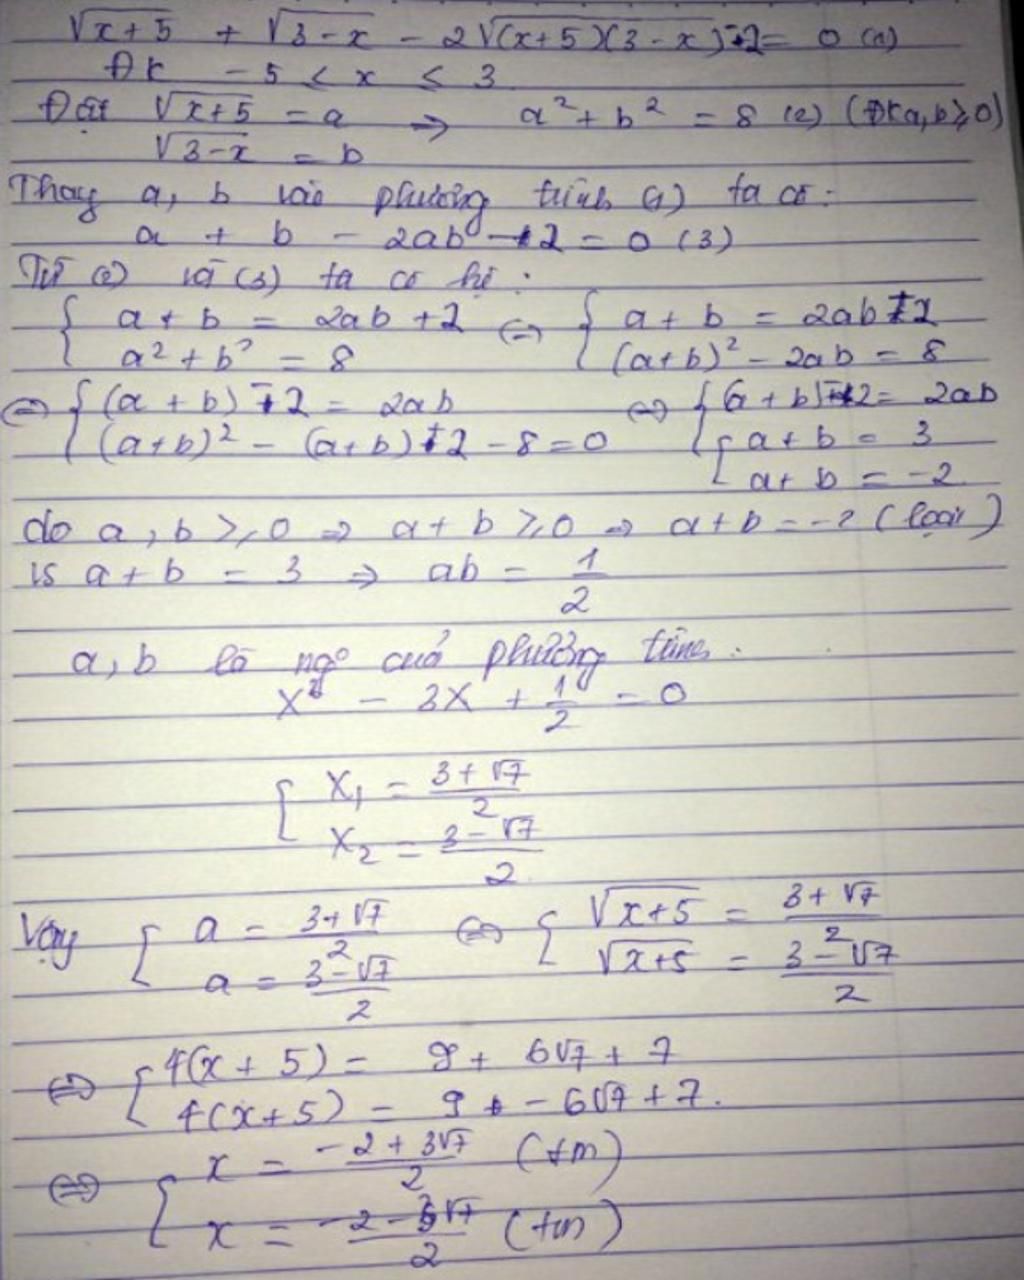 √x+5 + √3-x - 2√(x+5)(3-x) -2 = 0 (1)
ĐK -5 < x ≤ 3
Đặt √x+5 = a ⇒ a² + b² = 8 (2) (ĐK a, b ≥ 0)
√3-x = b
Thay a, b vào phương trình (1) ta có:
a + b - 2ab - 2 = 0 (3)
Từ (2) và (3) ta có hệ:
{ a + b = 2ab + 2 ⇔ { a + b = 2ab + 2
a² + b² = 8 (a+b)² - 2ab = 8
⇔ { (a + b) - 2 = 2ab ⇔ { (a + b) - 2 = 2ab
(a+b)² - (a+b) + 2 - 8 = 0 [ a + b = 3
a + b = -2
do a, b ≥ 0 ⇒ a + b ≥ 0 ⇒ a + b = -2 (loại)
a + b = 3 ⇒ ab = 1/2
a, b là ngº của phương trình.
X² - 3X + 1/2 = 0
[ X₁ = 3+√7/2
X₂ = 3-√7/2
Vậy [ a = 3+√7/2 ⇔ [ √x+5 = 3+√7/2
a = 3-√7/2 √x+5 = 3-√7/2
⇔ [ 4(x + 5) = 9 + 6√7 + 7
4(x+5) = 9 - 6√7 + 7.
⇔ [ x = -2 + 3√7/2 (tm)
x = -2 - 3√7/2 (tm)